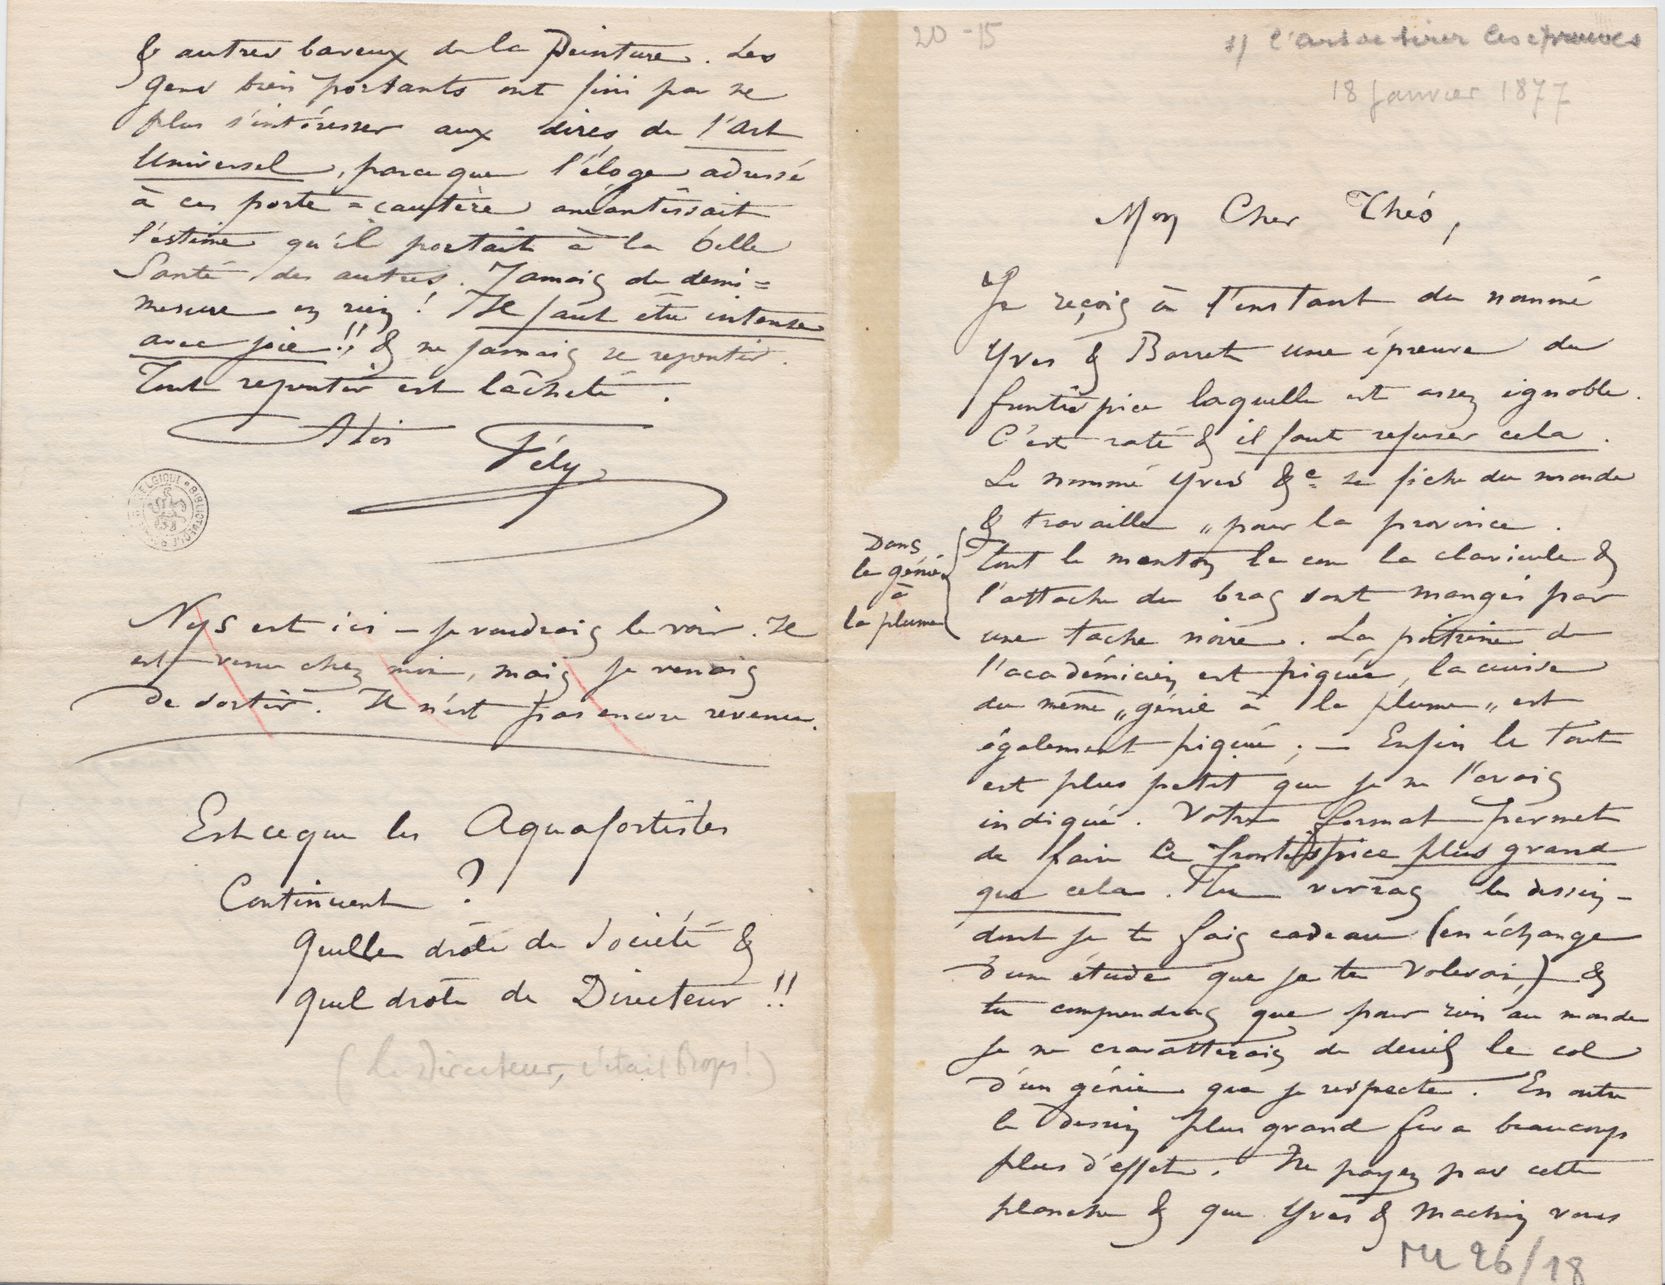 20-15
1) l'art de tirer les épreuves
18 Janvier 1877
Mon Cher Théo,
Je reçois à l'instant du nommé
Yves & Barret une épreuve du
funtispice laquelle est assez ignoble.
C'est raté & il faut refuser cela.
Le nommé Yves &c se fiche du monde
& travaille „pour la province.
Dans
le génie
à
la plume
Tout le menton le cou la clavicule &
l'attache du bras sont mangés par
une tache noire. La poitrine de
l'académicien est piquée, la cuisse
du même „génie à la plume„ est
également piquée; — Enfin le tout
est plus petit que je ne l'avais
indiqué. Votre format permet
de faire le frontispice plus grand
que cela. Tu verras le dessin -
dont je te fais cadeau (en échange
d'une étude que je te volerai,) &
tu comprendras que pour rien au monde
je ne cravatterais de deuil le col
d'un génie que je respecte. En outre
le dessin plus grand fera beaucoup
plus d'effet. Ne payez pas cette
planche & que Yves & Machin vous
ML 26/18
& autres baveux de la Peinture. Les
gens bien portants ont fini par ne
plus s'intéresser aux dires de l'Art
Universel, parceque l'éloge adressé
à ces porte=cautère anéantissait
l'estime qu'il portait à la belle
Santé des autres. Jamais de demi=
mesure en rien! Il faut être intense
avec joie!!, & ne jamais se repentir.
Tout repentir est lâcheté.
Adios Fély
Nys est ici – je voudrais le voir. Il
est venu chez moi, mais je venais
de sortir. Il n'est pas encore revenu.
Est ce que les Aquafortistes
Continuent ?
Quelle drôle de Société &
quel drôle de Directeur !!
(Le directeur, c'était Rops!)